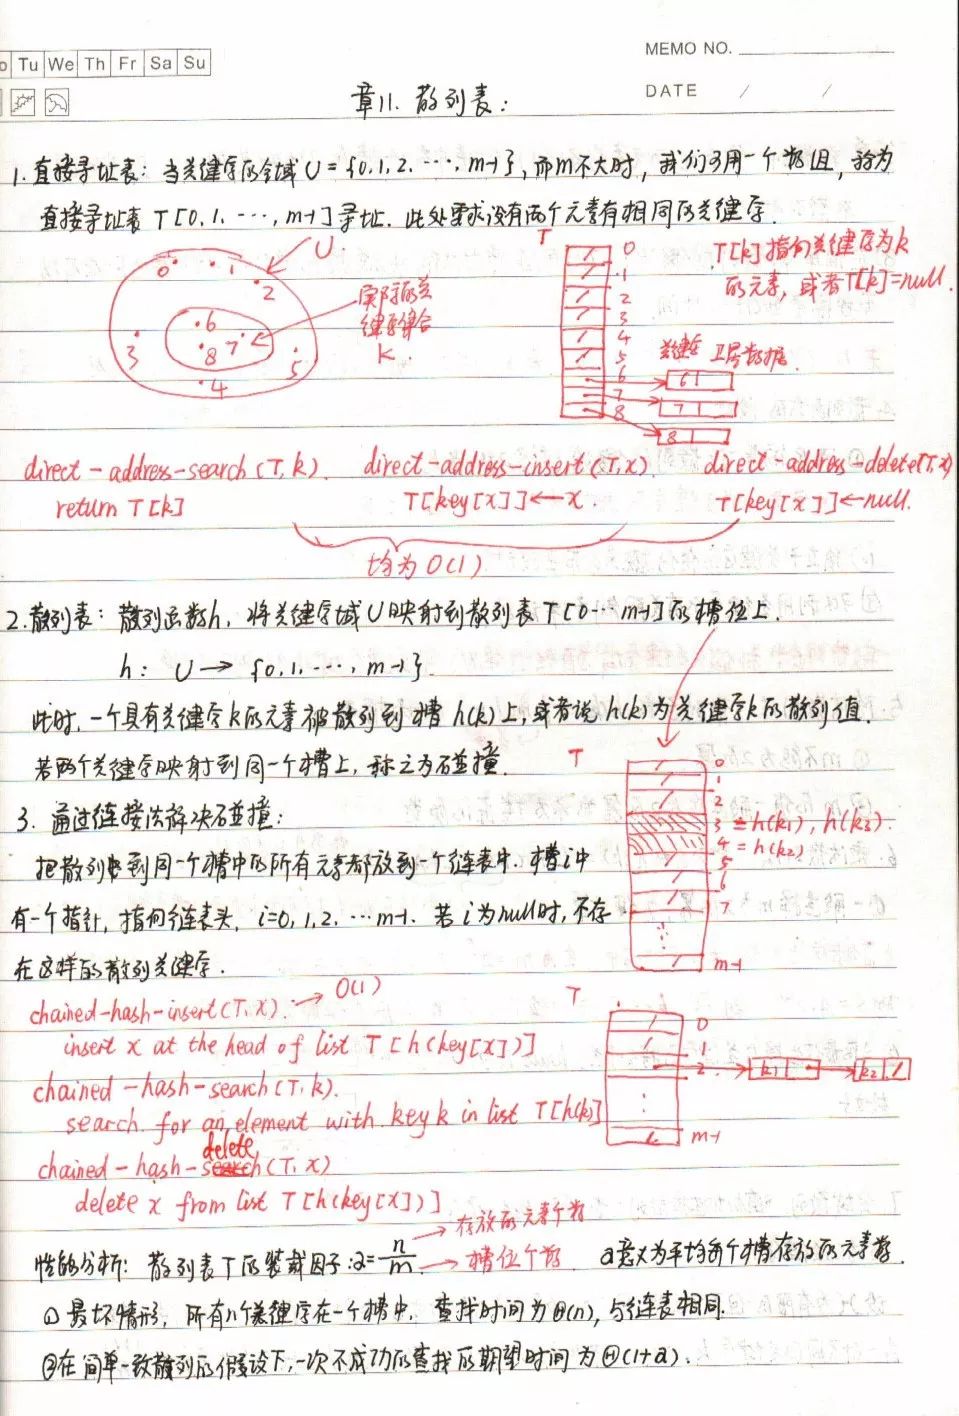 o Tu We Th Fr Sa Su
MEMO NO.
DATE / /
章11. 散列表:
1. 直接寻址表: 当关键字的全域 U = {0, 1, 2, ···, m-1}, 而m不大时, 我们可用一个数组, 称为
直接寻址表 T[0, 1, ···, m-1] 寻址. 此处要求没有两个元素有相同的关键字.
U.
0 1 2
3 6 7 8 5 4
实际的关
键字集合
K
T
0
1
2
3
4
5
6
7
8
T[k]指向关键字为k
的元素, 或者T[k]=null.
关键字 卫星数据
6
7
8
direct-address-search(T, k). direct-address-insert(T, x) direct-address-delete(T, x)
return T[k] T[key[x]]←x. T[key[x]]←null.
均为 O(1)
2. 散列表: 散列函数h, 将关键字域U映射到散列表T[0···m-1]的槽位上.
h: U → {0, 1, ···, m-1}.
此时, 一个具有关键字k的元素被散列到槽h(k)上, 或者说h(k)为关键字k的散列值.
若两个关键字映射到同一个槽上, 称之为碰撞.
T
0
1
2
3 = h(k1), h(k3).
4 = h(k2)
5
6
7
m-1
3. 通过链接法解决碰撞:
把散列到同一个槽中的所有元素都放到一个链表中. 槽i中
有一个指针, 指向链表头, i=0, 1, 2, ··· m-1. 若i为null时, 不存
在这样的散列关键字.
chained-hash-insert(T, x). → O(1)
insert x at the head of list T[h(key[x])]
chained-hash-search(T, k).
search for an element with key k in list T[h(k)]
chained-hash-delete(T, x)
delete x from list T[h(key[x])]
T
0
1
2 k1 k2
m-1
性能分析: 散列表T的装载因子: α = n/m → 存放的元素个数 → 槽位个数 α意义为平均每个槽存放的元素数.
① 最坏情形, 所有n个关键字在一个槽中, 查找时间为Θ(n), 与链表相同.
②在简单一致散列的假设下, 一次不成功的查找的期望时间为Θ(1+α).